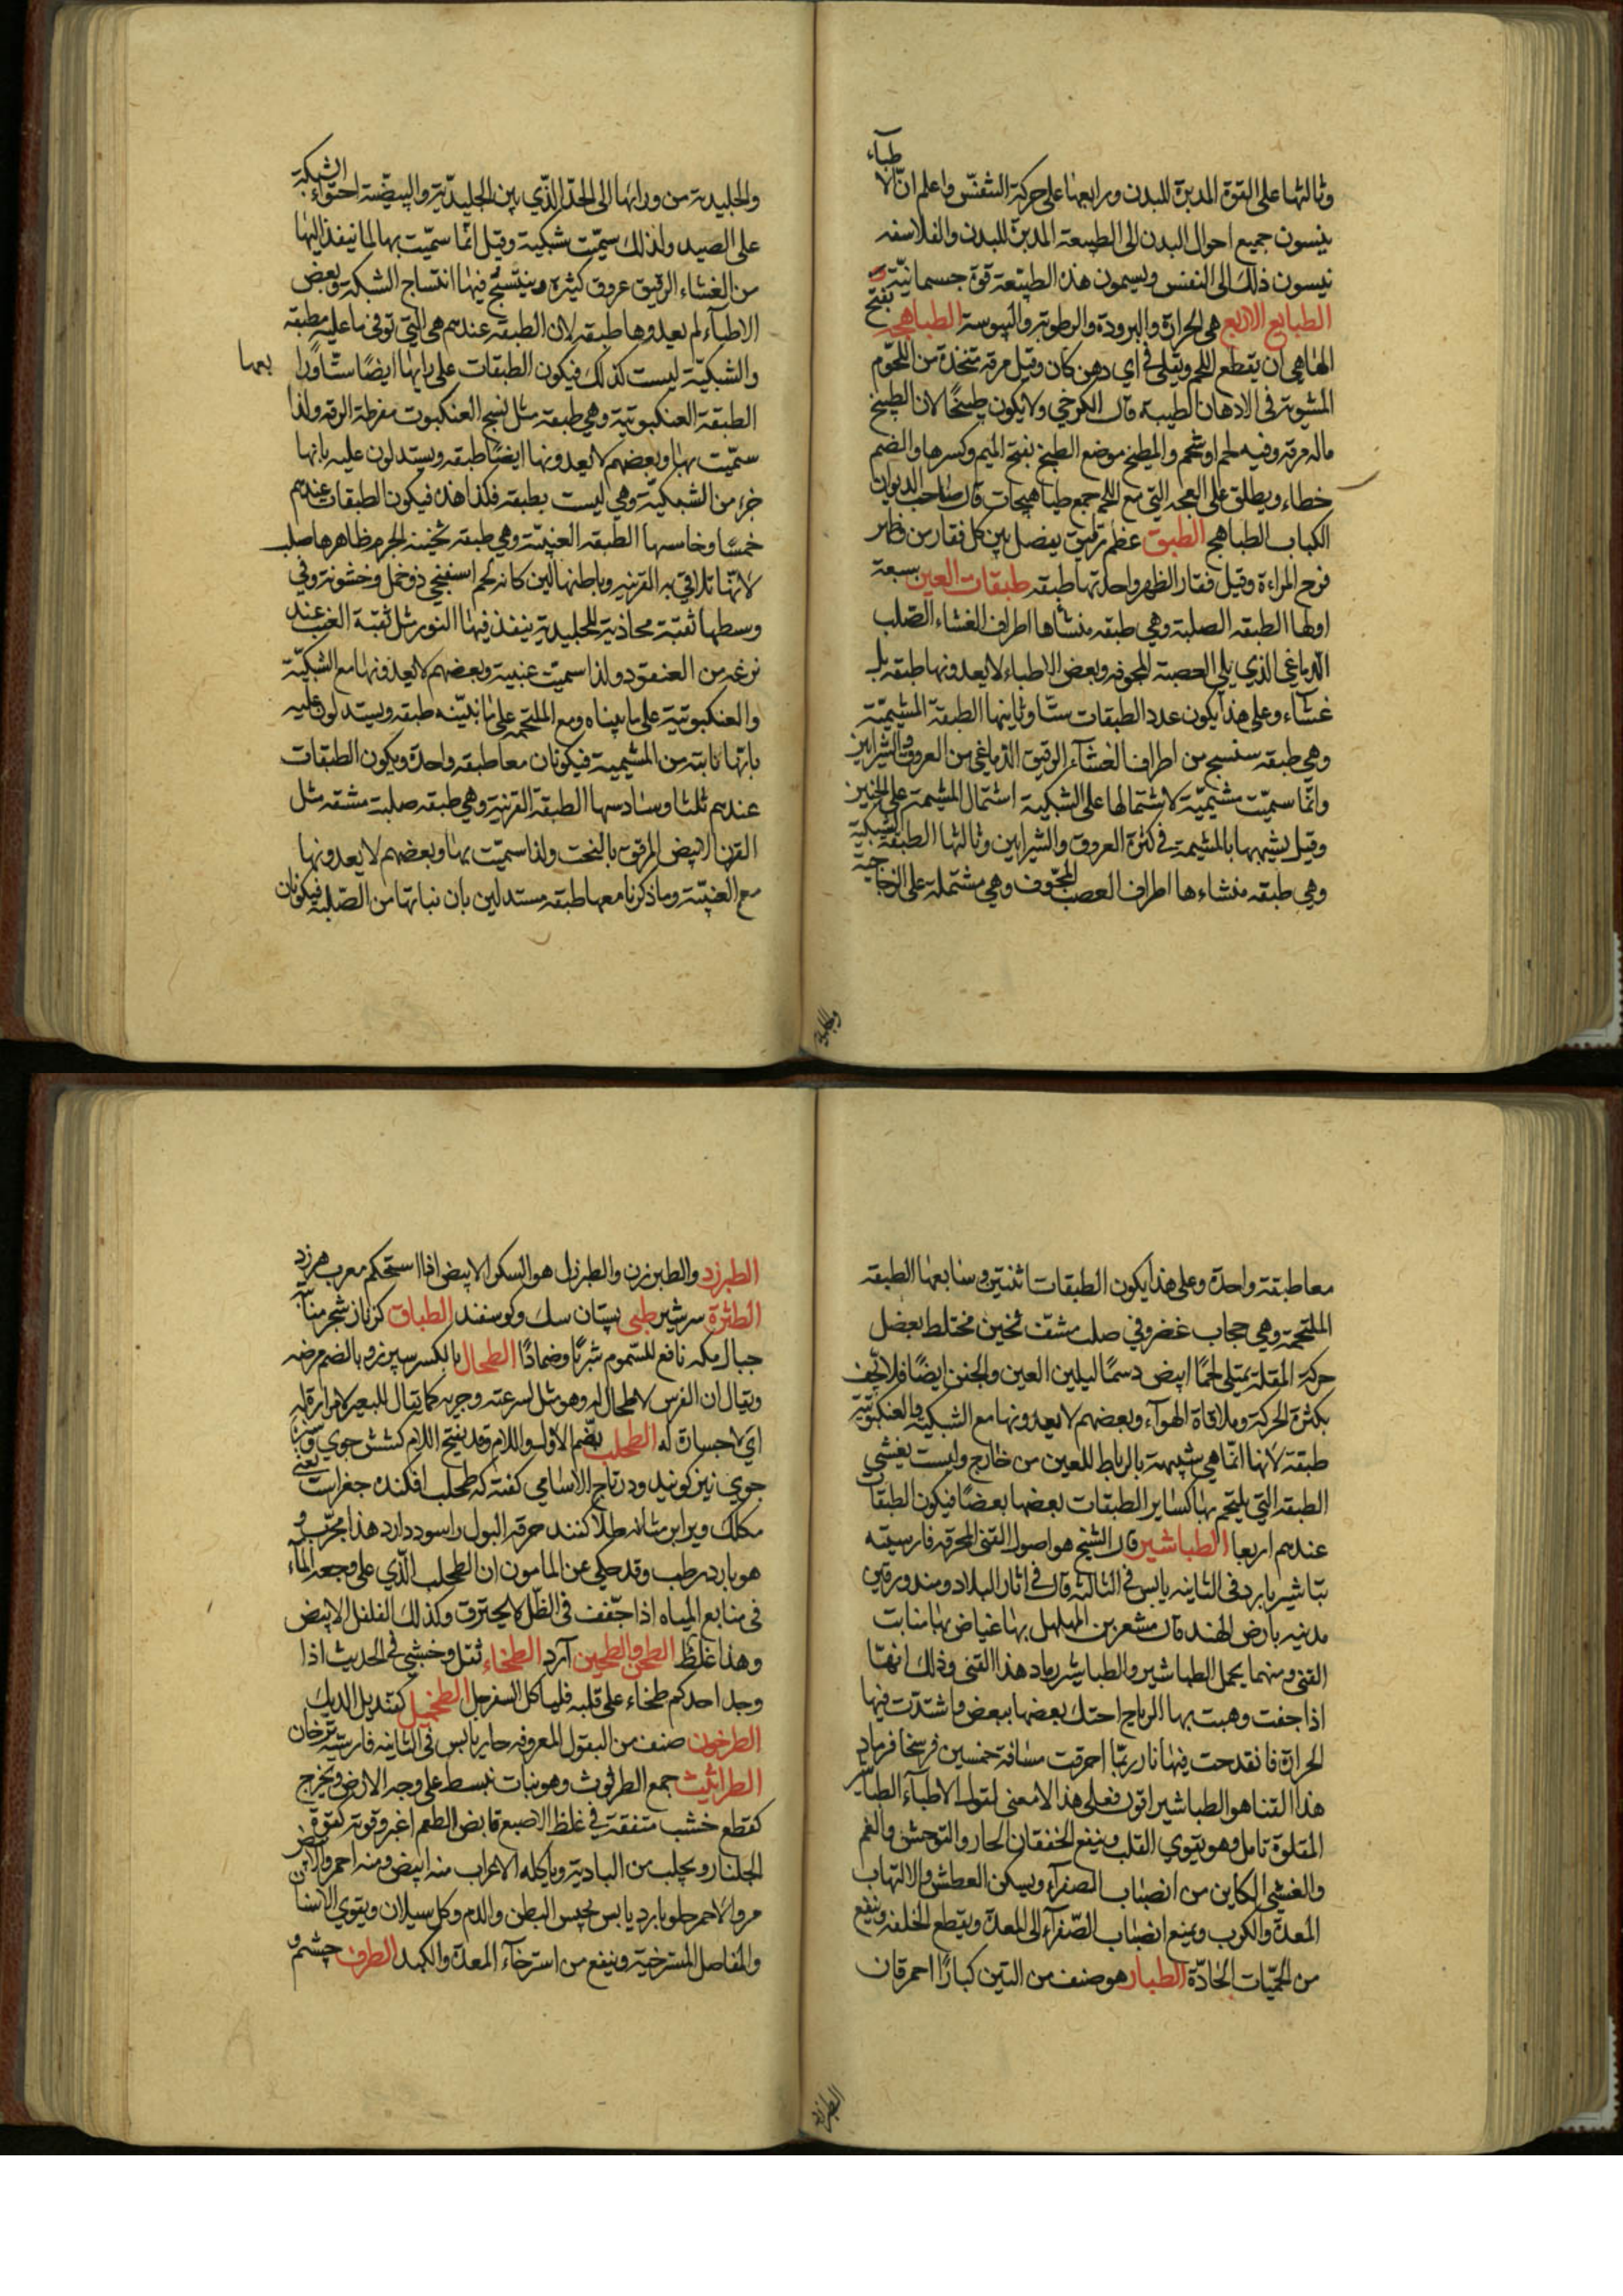 وثالثها على القوة المدبرة للبدن ورابعها على حركة التنفس واعلم ان الاطباء
ينسبون جميع احوال البدن الى الطبيعة المدبرة للبدن والفلاسفه
ينسبون ذلك الى النفس ويسمون هذه الطبيعة قوة جسمانية
الطبايع الاربع هي الحرارة والبرودة والرطوبة واليبوسة الطباهجه بفتح
الهاء هي ان يقطع اللحم ويقلى في اي دهن كان وقيل مرقة متخذة من اللحوم
المشوية في الادهان الطيبة قال الكرخي ولا يكون طبيخا لان الطبيخ
ماله مرقة وفيه لحم او شحم والمطبخ موضع الطبخ بفتح الميم وكسرها والضم
خطاء ويطلق على العجه التي مع اللحم جمع طباهيجات قال صاحب الديوان
الكباب الطباهج الطبق عظم رقيق يفصل بين كل فقارين وظهر
فرج المراءة وقيل فقار الظهر واحدتها طبقه طبقات العين سبعة
اولها الطبقه الصلبة وهي طبقه منشأها اطراف الغشاء الصلب
الدماغي الذي يلي العصبة المجوفه وبعض الاطباء لا يعدونها طبقه بل
غشاء وعلى هذا يكون عدد الطبقات ستا وثانيها الطبقة المشيمية
وهي طبقه تنسج من اطراف الغشاء الرقيق الدماغي من العروق والشرايين
وانما سميت مشيمية لاشتمالها على الشبكية اشتمال المشيمة على الجنين
وقيل يشبهها بالمشيمة في كثرة العروق والشرايين وثالثها الطبقة الشبكية
وهي طبقه منشاءها اطراف العصب المجوف وهي مشتملة على الزجاجية
والجليدية
والجليدية من ورائها الى الحد الذي بين الجليدية والبيضية احتواء الشبكة
على الصيد ولذلك سميت شبكية وقيل انما سميت بها لما ينفذ اليها
من الغشاء الرقيق عروق كثيرة وينتسج فيها انتساج الشبكة وبعض
الاطباء لم يعدوها طبقه لان الطبقه عندهم هي التي توقى ما عليه مطبقه
والشبكية ليست كذلك فيكون الطبقات على رايها ايضا ستا ورا
بعها
الطبقة العنكبوتية وهي طبقه مثل نسج العنكبوت مفرطة الرقه ولذا
سميت بها وبعضهم لا يعدونها ايضا طبقه ويستدلون عليه بانها
جزء من الشبكية وهي ليست بطبقه فلذا هذه فيكون الطبقات عندهم
خمسا وخامسها الطبقه العنبية وهي طبقه ثخينة الجرم ظاهرها صلب
لانها تلاقي به القرنيه وباطنها لين كانه لحم اسفنجي ذو خمل وخشونة وفي
وسطها ثقبة محاذية للجليدية ينفذ فيها النور مثل ثقبة العنب عند
نزعه من العنقود ولذا سميت عنبية وبعضهم لا يعدونها مع الشبكية
والعنكبوتية على ما بيناه ومع الملتحمه على ما نبينه طبقه ويستدلون عليه
بانها نابته من المشيمية فيكونان معا طبقه واحدة ويكون الطبقات
عندهم ثلثا وسادسها الطبقة القرنية وهي طبقه صلبة مشفه مثل
القرن الابيض المرقق بالنحت ولذا سميت بها وبعضهم لا يعدونها
مع العنبية وما ذكرنا معها طبقه مستدلين بان نباتها من الصلبه فيكونان
معا طبقة واحدة وعلى هذا يكون الطبقات اثنتين وسابعها الطبقه
الملتحمة وهي حجاب غضروفي صلب مشف ثخين مختلط بعضل
حركة المقلة يمتلي لحما ابيض دسما ليلين العين والجفن ايضا فلا تجف
بكثرة الحركة وملاقاة الهواء وبعضهم لا يعدونها مع الشبكية والعنكبوتية
طبقة لانها انما هي شبيهة بالرباط للعين من خارج وليست يغشي
الطبقه التي يلتحم بها كساير الطبقات بعضها بعضا فيكون الطبقات
عندهم اربعا الطباشير قال الشيخ هو اصول القنى المحرقه فارسيته
تباشير بارد في الثانيه يابس في الثالثة قال في اثار البلاد ومندورقين
مدنيه بارض الهند قال مشعر بن المهلهل بها غياض بها منابت
القنى ومنهما يحمل الطباشير والطباشير رماد هذا القنى وذلك انها
اذا جفت وهبت بها الرياح احتك بعضها ببعض واشتدت فيها
الحرارة فانقدحت فيها نار ربما احرقت مسافة خمسين فرسخا فرماد
هذا القنا هو الطباشير اقول فعلى هذا لا معنى لقول الاطباء الطباشير
المقلوة تامل وهو يقوي القلب وينفع الخفقان الحار والتوحش والغم
والغشي الكاين من انصباب الصفراء ويسكن العطش والالتهاب
المعدة والكرب ويمنع انصباب الصفراء الى المعدة ويقطع الخلفه وينفع
من الحميات الحادة الطبار هو صنف من التين كبارا احمر قان
الطبرزد
الطبرزد والطبرزن والطبرزل هو السكر الابيض اذا استحكم معرب هرزد
الطثرة سرشير طبى پستان سك وكوسفند الطباق كزباز شجر منابته
جبال مكه نافع للسموم شربا وضمادا الطحال بالكسر سپرز وبالضم مرضه
ويقال ان الفرس لا طحال له وهو مثل لسرعته وجريه كما يقال للبعير لا مرارة له
اي لا جسارة له الطحلب بضم الاول واللام وقد يفتح اللام كشش جوي وبزبان
جوي نيز كويند ودر تاج الاسامي كفته كه طحلب افكنده جغرابست يعني
مكلك ويرا بر مثانه طلا كنند حرقه البول را سود دارد هذا مجرب و
هو بارد رطب وقد حكي عن المامون ان الطحلب الذي على وجه الماء
في منابع المياه اذا جفف في الظل لا يحترق وكذلك الفلفل الابيض
وهذا غلظ الطحن والطحين آرد الطخاء ثقل وغشي في الحديث اذا
وجد احدكم طخاء على قلبه فليأكل السفرجل الطخميل كقنديل الديك
الطرخون صنف من البقول المعروفه حار يابس في الثانيه فارسيته ترخان
الطراثيث جمع الطرثوث وهو نبات ينبسط على وجه الارض ويخرج
كقطع خشب متفقة في غلظ الاصبع قابض الطعم اغبر وقوته كقوة
الجلنار ويجلب من البادية وياكله الاعراب منه ابيض ومنه احمر والابيض
مر والاحمر حلو بارد يابس يحبس البطن والدم وكل سيلان ويقوي الاسنان
والمفاصل المسترخية وينفع من استرخاء المعدة والكبد الطرف چشم و